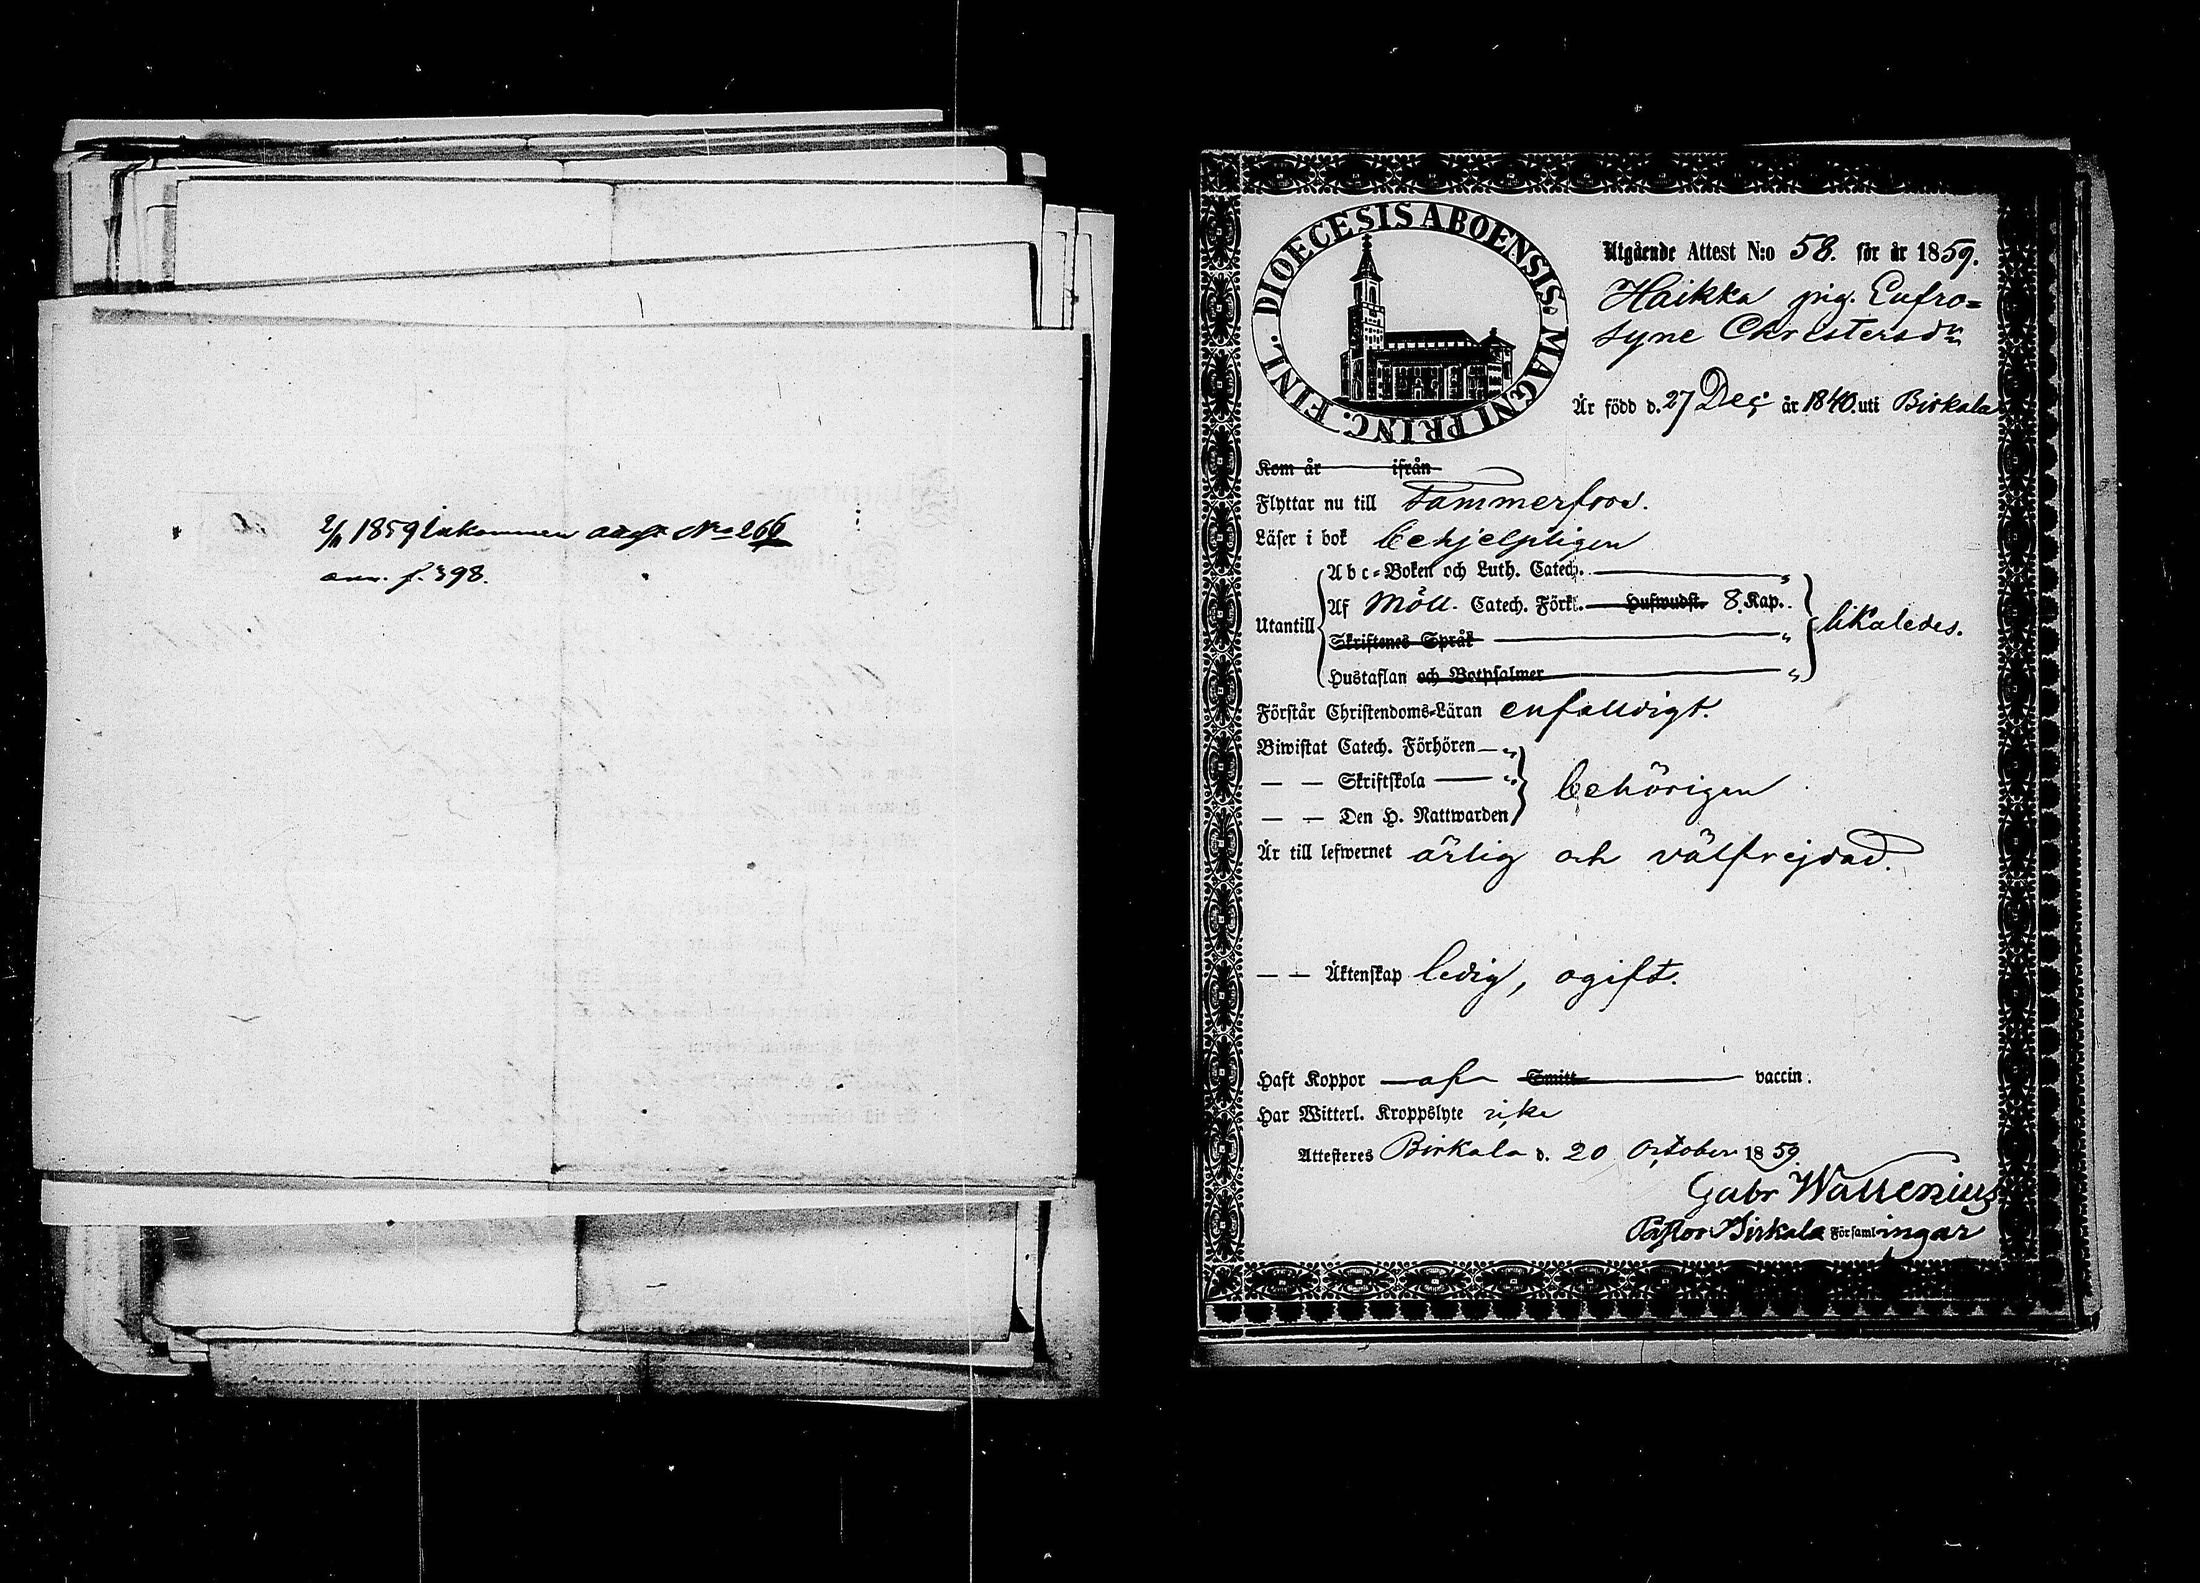 2/11 1859 Inkommen attest No 266
ann. f. 398.
DIOECESIS ABOENSIS. MAGNI PRINC. FINL.
Utgående Attest N:o 58. för år 1859.
Haikka pig. Eufro=
syne Christersdr
Är född d. 27 Dec. år 1840. uti Birkala
Kom år ifrån
Flyttar nu till Tammerfors.
Läser i bok behjelpligen
Abc=Boken och Luth. Catech. "
Af Möll. Catech. Förkl. Hufwudst. 8. Kap.
Utantill likaledes.
Skriftenes Språk "
Hustaflan och Botpsalmer "
Förstår Christendoms=Läran enfaldigt.
Biwistat Catech. Förhören — "
— — Skriftskola — " behörigen
— — Den H. Nattwarden
Är till lefwernet ärlig och välfrejdad.
— — Äktenskap ledig, ogift.
Haft Koppor af Smitt vaccin.
Har Witterl. Kroppslyte icke
Attesteres Birkala d. 20 October 1859
Gabr Wallenius
Pastor i Birkala Församlingar